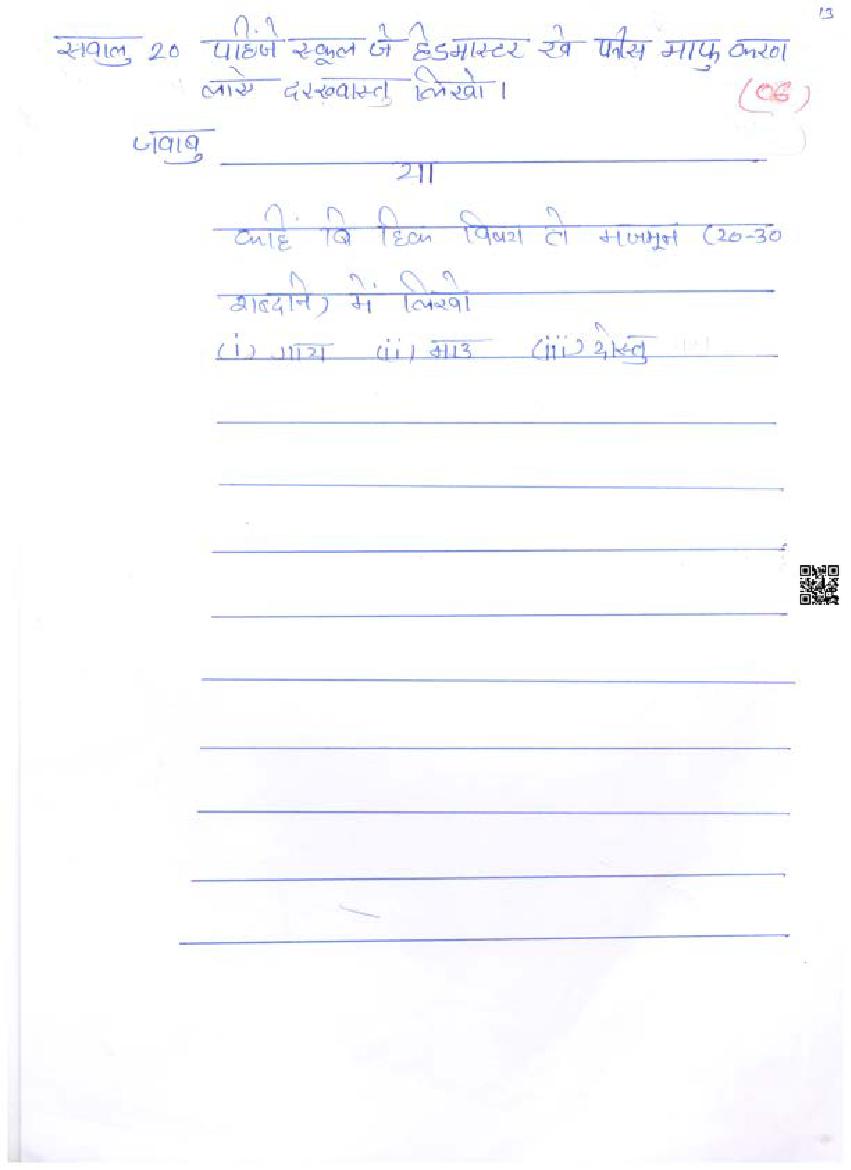 13
सवालु 20 पंहिंजे स्कूल जे हेडमास्टर खे फीस माफु करण
लाऐ दरख्वास्तु लिखो।
(06)
जवाबु
या
कहिं बि हिक विषय ते मजमून (20-30
शब्दनि) में लिखो
(i) गाय (ii) माउ (iii) दोस्तु